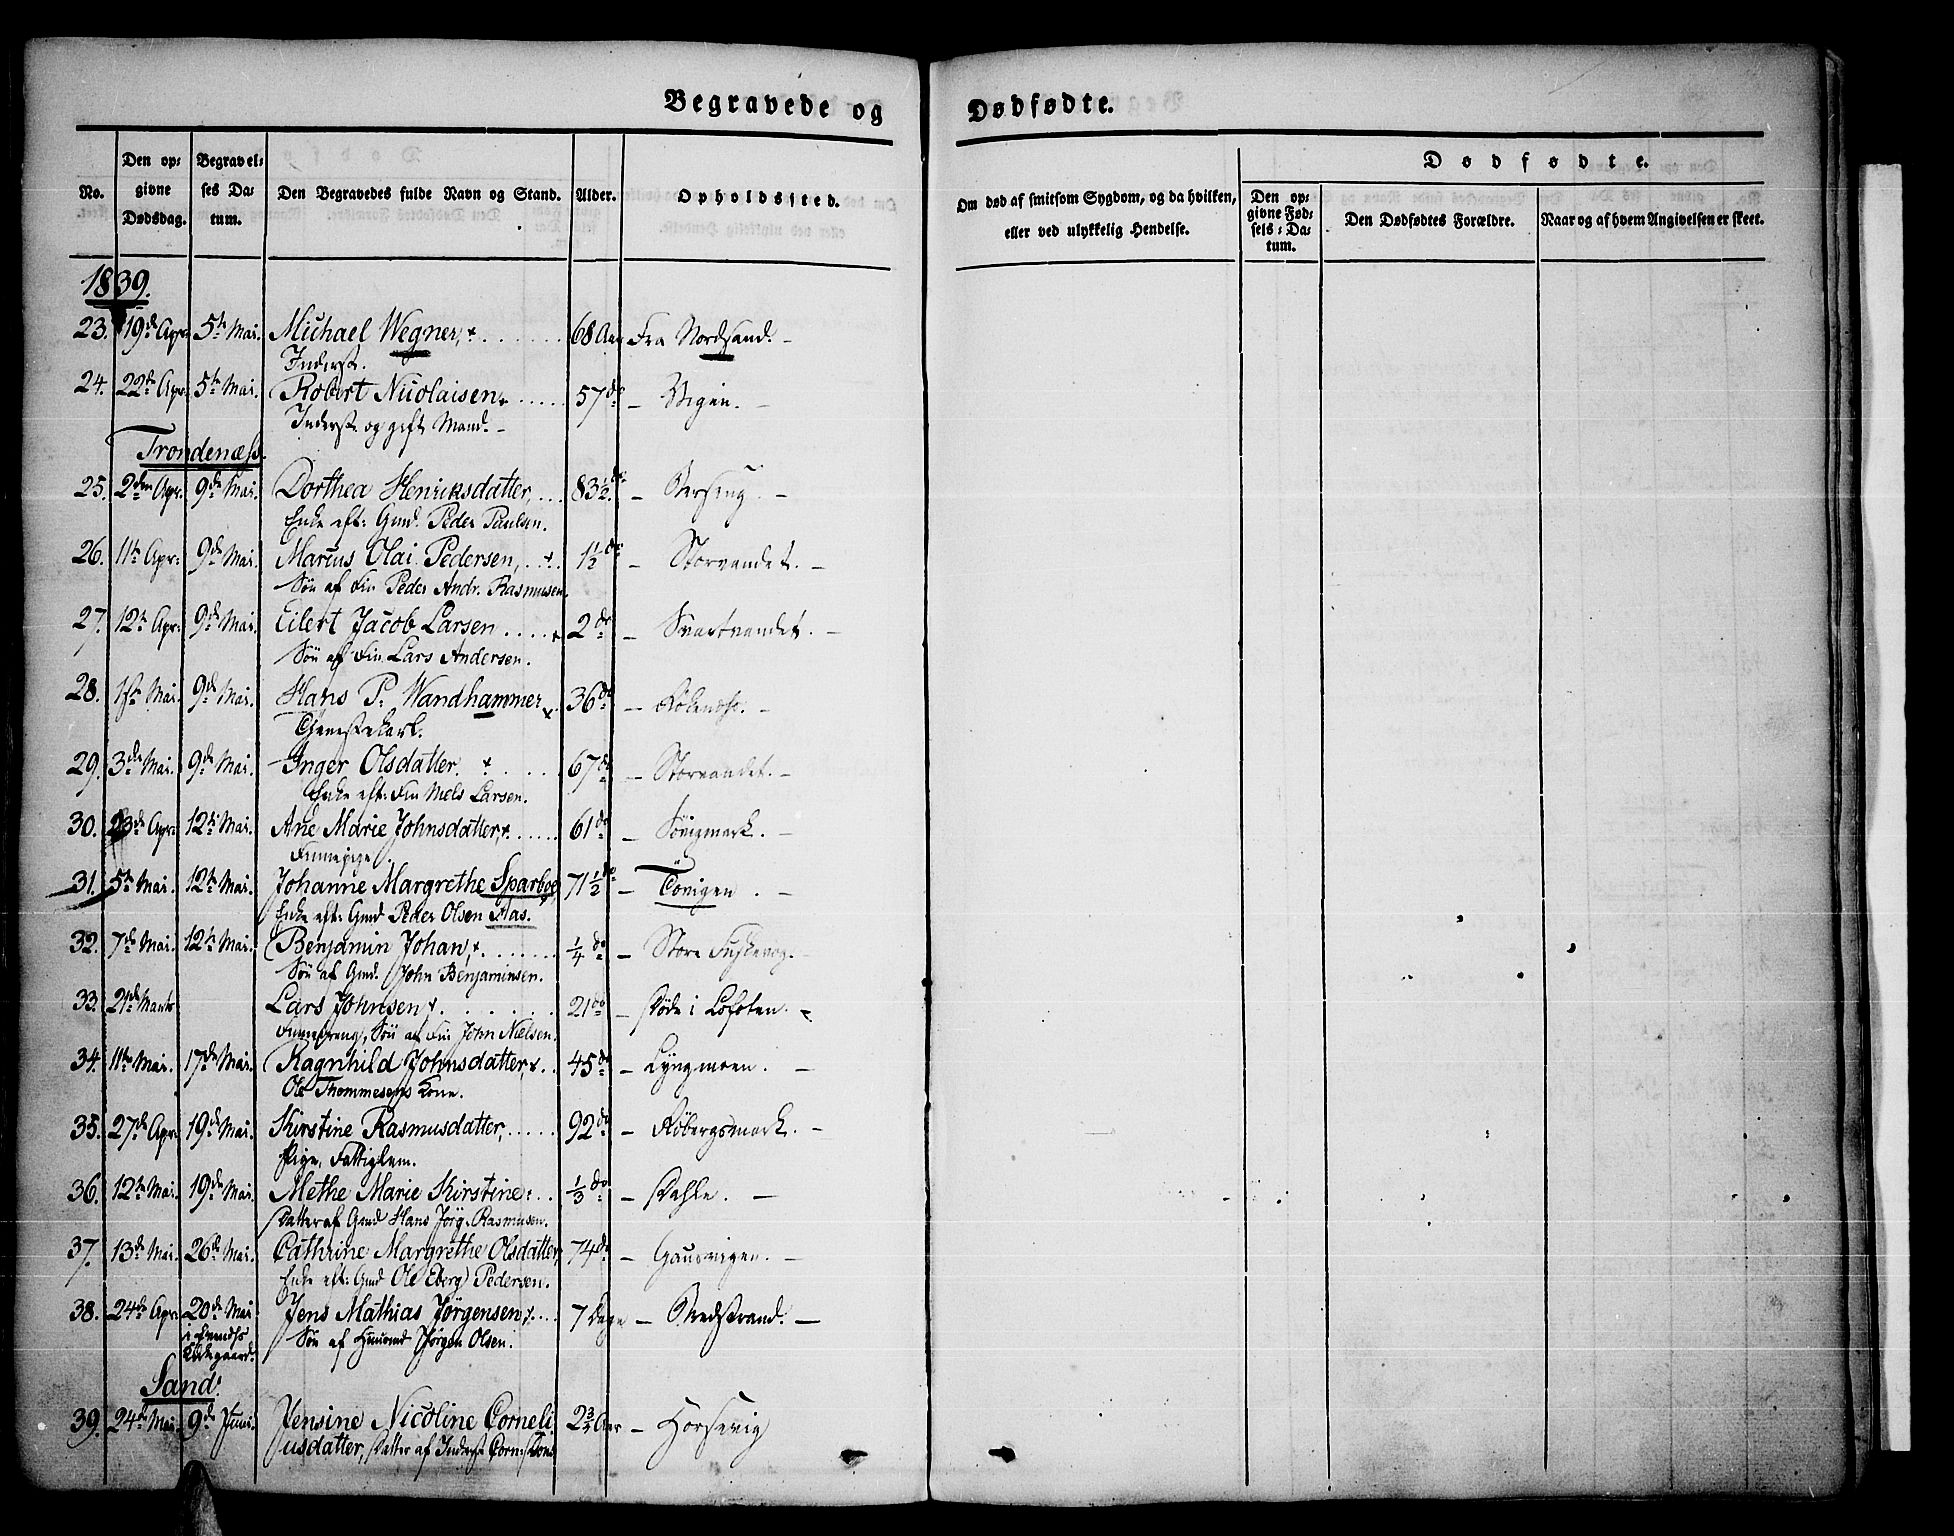 Begravede og Dødfødte.
No. Den opgivne Dødsdag. Begravelses Datum. Den Begravedes fulde Navn og Stand. Alder. Opholdssted. Om død af smitsom Sygdom, og da hvilken, eller ved ulykkelig Hendelse. Dødfødte. Den opgivne Fødsels-Datum. Den Dødfødtes Forældre. Naar og af hvem Angivelsen er skeet.
1839.
23. 19de Apr: 5te Mai. Michael Wegner, 68 Aar Fra Nordsand. -
Inderst.
24. 22de Apr: 5te Mai. Robert Nicolaisen 57 do - Vigen. -
Inderst og gift Mand. -
Trondenæss.
25. 2den Apr: 9de Mai. Dorthea Henriksdatter, 83½ do - Bersing. -
Enke eft: Gmd. Peder Paulsen.
26. 11te Apr: 9de Mai. Marcus Olai Pedersen, 1½ do - Storvandet. -
Søn af Fin Peder Andr. Rasmusen.
27. 12te Apr: 9de Mai. Eilert Jacob Larsen 2 do - Svartvandet. -
Søn af Fin Lars Andersen.
28. 1ste Mai. 9de Mai. Hans P. Wandhammer 36 do -
Tjenestekarl.
29. 3die Mai. 9de Mai. Inger Olsdatter. 67 do - Storvandet. -
Enke eft: Fin Niels Larsen.
30. 23de Apr: 12te Mai. Ane Marie Johnsdatter, 61 do - Søvigmark. -
Finnepige.
31. 5te Mai. 12te Mai. Johanne Margrethe Sparboe 71½ do - Tövigen. -
Enke eft: Gmd Peder Olsen Aas.
32. 7de Mai. 12te Mai. Benjamin Johan, ¼ do - Store
Søn af Gmd. John Benjaminsen.
33. 21de Marts Lars Johnsen, 21 do - Døde i Lofoten. -
Finnedreng, Søn af Fin John Nielsen.
34. 11te Mai. 17de Mai. Ragnhild Johnsdatter, 45 do - Lyngmoen. -
Ole Thommesens Kone.
35. 27de Apr: 19de Mai. Kirstine Rasmusdatter, 92 do - Röbergsmark. -
Pige, Fattiglem.
36. 12te Mai. 19de Mai. Methe Marie Kirstine, ⅓ do - Dahle. -
Datter af Gmd Hans Jörg. Rasmusen.
37. 13de Mai. 26de Mai. Cathrine Margrethe Olsdatter, 74 do - Gausvigen. -
Enke eft: Gmd Ole Eberg Pedersen.
38. 24de Apr: 20de Mai Jens Mathias Jörgensen, 7 Dage - Bredstrand. -
i Kirkegaard. Søn af Huusmd Jörgen Olsen.
Sand.
39. 24de Mai. 9de Juni. Jensine Nicoline Corneli 2¾ Aar - Horsevig
usdatter, Datter af Inderst Corn: